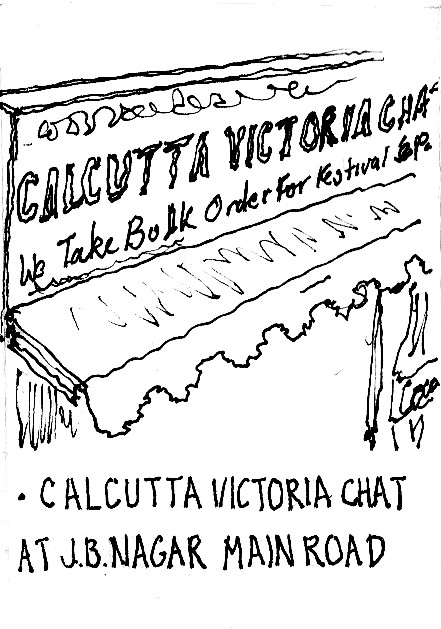 CALCUTTA VICTORIA CHA
We Take Bulk Order For Festival
Coca
• CALCUTTA VICTORIA CHAT
AT J.B.NAGAR MAIN ROAD